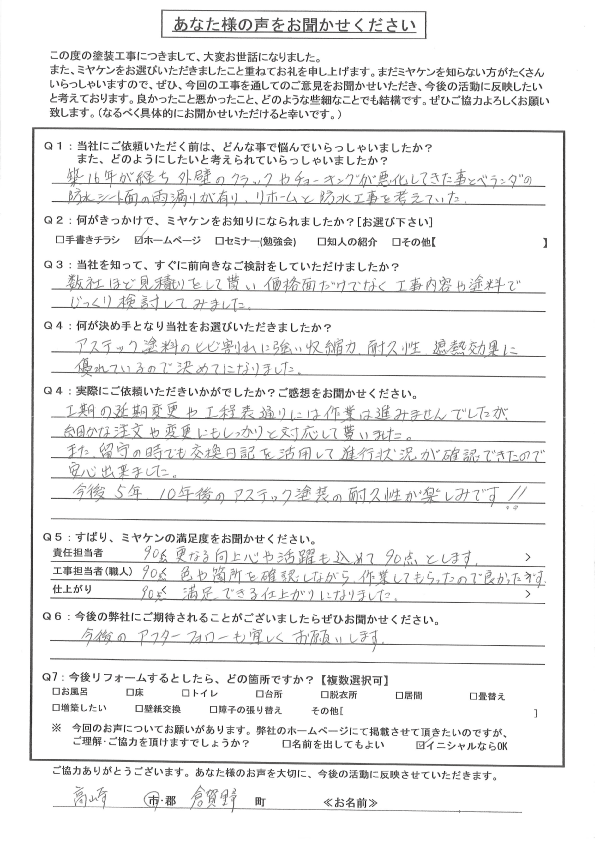 あなた様の声をお聞かせください
この度の塗装工事につきまして、大変お世話になりました。
また、ミヤケンをお選びいただきましたこと重ねてお礼を申し上げます。まだミヤケンを知らない方がたくさん
いらっしゃいますので、ぜひ、今回の工事を通してのご意見をお聞かせいただき、今後の活動に反映したい
と考えております。良かったこと悪かったこと、どのような些細なことでも結構です。ぜひご協力よろしくお願い
致します。（なるべく具体的にお聞かせいただけると幸いです。）
Q１：当社にご依頼いただく前は、どんな事で悩んでいらっしゃいましたか？
また、どのようにしたいと考えられていらっしゃいましたか？
築16年が経ち外壁のクラックやチョーキングが悪化してきた事とベランダの
防水シート面の雨漏りが有り、リホームと防水工事を考えていた。
Q２：何がきっかけで、ミヤケンをお知りになられましたか？[お選び下さい]
□手書きチラシ ☑ホームページ □セミナー(勉強会) □知人の紹介 □その他【 】
Q３：当社を知って、すぐに前向きなご検討をしていただけましたか？
数社ほど見積りをして貰い価格面だけでなく工事内容や塗料で
じっくり検討してみました。
Q４：何が決め手となり当社をお選びいただきましたか？
アステック塗料のヒビ割れに強い収縮力、耐久性、遮熱効果に
優れているので決めてになりました。
Q４：実際にご依頼いただきいかがでしたか？ご感想をお聞かせください。
工期の延期変更や工程表通りには作業は進みませんでしたが、
細かな注文や変更にもしっかりと対応して貰いました。
また、留守の時でも交換日記を活用して進行状況が確認できたので
安心出来ました。
今後5年、10年後のアステック塗装の耐久性が楽しみです!!
Q５：ずばり、ミヤケンの満足度をお聞かせください。
責任担当者 90点 更なる向上心や活躍も込めて90点とします。 ＞
工事担当者(職人) 90点 色や箇所を確認しながら、作業してもらったので良かったです。
仕上がり 90点 満足できる仕上がりになりました。 ＞
Q６：今後の弊社にご期待されることがございましたらぜひお聞かせください。
今後のアフターフォローも宜しくお願いします。
Q7：今後リフォームするとしたら、どの箇所ですか？【複数選択可】
□お風呂 □床 □トイレ □台所 □脱衣所 □居間 □畳替え
□増築したい □壁紙交換 □障子の張り替え その他[ ]
※ 今回のお声についてお願いがあります。弊社のホームページにて掲載させて頂きたいのですが、
ご理解・ご協力を頂けますでしょうか？ □名前を出してもよい ☑イニシャルならOK
ご協力ありがとうございます。あなた様のお声を大切に、今後の活動に反映させていただきます。
高崎 市・郡 倉賀野 町 ≪お名前≫